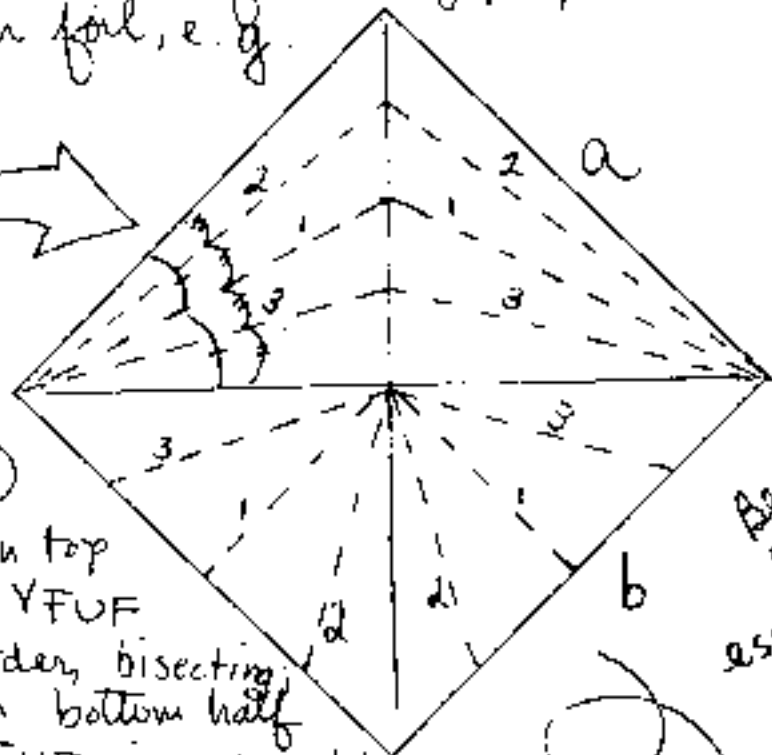 foil, e.g.
2
2
a
1
1
3
3
3
3
1
1
2
2
b
top
FUF
bisecting
bottom half